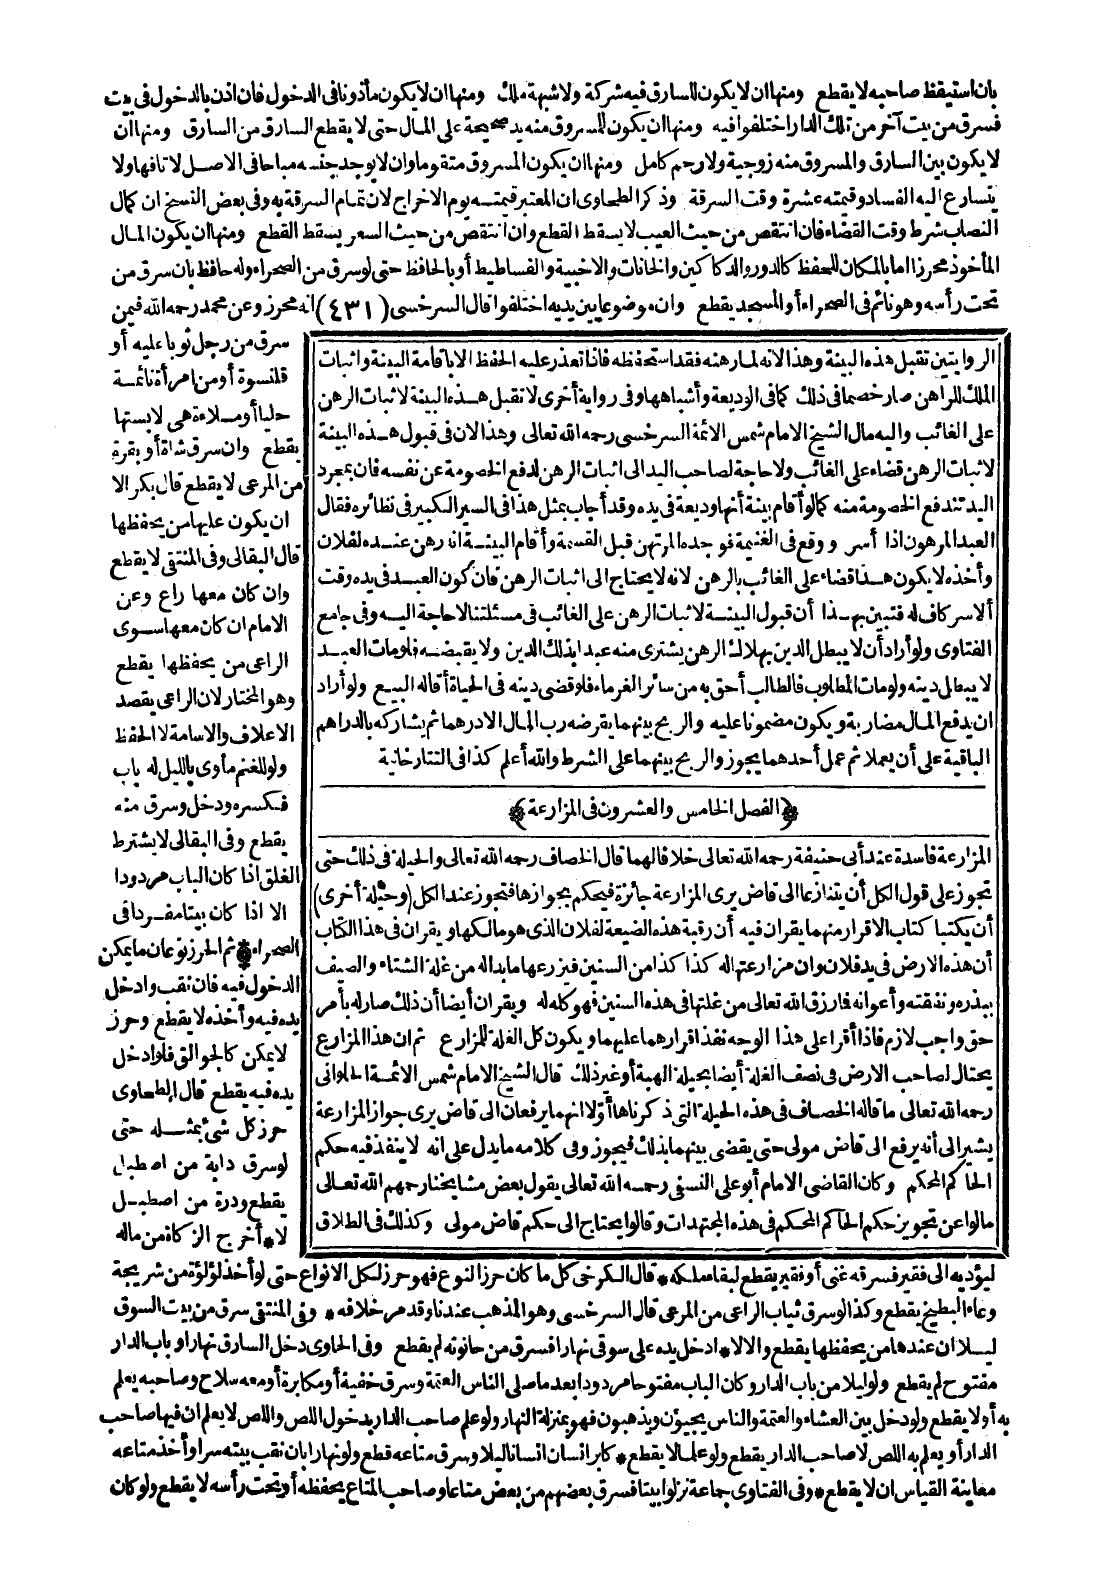 بان استيقظ صاحبه لا يقطع ومنها ان لا يكون للسارق فيه شركة ولا شبهة ملك ومنها ان لا يكون مأذونا فى الدخول فان اذن بالدخول فى بيت
فسرق من بيت آخر من تلك الدار اختلفوا فيه ومنها ان يكون للمسروق منه يد صحيحة على المال حتى لا يقطع السارق من السارق ومنها ان
لا يكون بين السارق والمسروق منه زوجية ولا رحم كامل ومنها ان يكون المسروق متقوما وان لا يوجد جنسه مباحا فى الاصل لا تافها ولا
يتسارع اليه الفساد وقيمته عشرة وقت السرقة وذكر الطحاوى ان المعتبر قيمته يوم الاخراج لان تمام السرقة به وفى بعض النسخ ان كمال
النصاب شرط وقت القضاء فان انتقص من حيث العيب لا يسقط القطع وان انتقص من حيث السعر يسقط القطع ومنها ان يكون المال
المأخوذ محرزا اما بالمكان للحفظ كالدور والدكاكين والخانات والاخبية والفساطيط أو بالحافظ حتى لو سرق من الصحراء وله حافظ بان سرق من
تحت رأسه وهو نائم فى الصحراء أو المسجد يقطع وان موضوعا بين يديه اختلفوا قال السرخسى (٤٣١) انه محرز وعن محمد رحمه الله فيمن
سرق من رجل ثوبا عليه أو
قلنسوة أو من امرأة نائمة
حليا أو ملاءة هى لابستها
يقطع وان سرق شاة أو بقرة
من المرعى لا يقطع قال بكر الا
ان يكون عليها من يحفظها
قال البقالى وفى المنتقى لا يقطع
وان كان معها راع وعن
الامام ان كان معها سوى
الراعى من يحفظها يقطع
وهو المختار لان الراعى يقصد
الاعلاف والاسامة لا الحفظ
ولو للغنم مأوى بالليل له باب
فكسره ودخل وسرق منه
يقطع وفى البقالى لا يشترط
الغلق اذا كان الباب مردودا
الا اذا كان بيتا مفردا فى
الصحراء * ثم الحرز نوعان ما يمكن
الدخول فيه فان نقب وادخل
يده فيه وأخذه لا يقطع وحرز
لا يمكن كالجوالق فلو ادخل
يده فيه يقطع قال الطحاوى
حرز كل شئ بمثله حتى
لو سرق دابة من اصطبل
يقطع ودرة من اصطبل
لا * أخرج الزكاة من ماله
الروايتين تقبل هذه البينة وهذا لانه لما رهنه فقد استحفظه فاذا تعذر عليه الحفظ الا باقامة البينة واثبات
الملك للراهن صار خصما فى ذلك كما فى الوديعة وأشباهها وفى رواية أخرى لا تقبل هذه البينة لاثبات الرهن
على الغائب واليه مال الشيخ الامام شمس الائمة السرخسى رحمه الله تعالى وهذا لان فى قبول هذه البينة
لاثبات الرهن قضاء على الغائب ولا حاجة لصاحب اليد الى اثبات الرهن لدفع الخصومة عن نفسه فان بمجرد
اليد تندفع الخصومة منه كما لو أقام بينة أنها وديعة فى يده وقد أجاب بمثل هذا فى السير الكبير فى نظائره فقال
العبد المرهون اذا أسر ووقع فى الغنيمة فوجده المرتهن قبل القسمة وأقام البينة انه رهن عنده لفلان
وأخذه لا يكون هذا قضاء على الغائب بالرهن لانه لا يحتاج الى اثبات الرهن فان كون العبد فى يده وقت
الاسر كاف له فتبين بهذا أن قبول البينة لاثبات الرهن على الغائب فى مسئلتنا لا حاجة اليه وفى جامع
الفتاوى ولو أراد أن لا يبطل الدين بهلاك الرهن يشترى منه عبدا بذلك الدين ولا يقبضه فلو مات العبد
لا يبطل دينه ولو مات المطلوب فالطالب أحق به من سائر الغرماء فلو قضى دينه فى الحياة أقاله البيع ولو أراد
ان يدفع المال مضاربة ويكون مضمونا عليه والربح بينهما يقرضه رب المال الا درهما ثم يشاركه بالدراهم
الباقية على أن يعملا ثم عمل أحدهما يجوز والربح بينهما على الشرط والله أعلم كذا فى التتارخانية
﴿الفصل الخامس والعشرون فى المزارعة﴾
المزارعة فاسدة عند أبى حنيفة رحمه الله تعالى خلافا لهما قال الخصاف رحمه الله تعالى والحيلة فى ذلك حتى
تجوز على قول الكل أن يتنازعا الى قاض يرى المزارعة جائزة فيحكم بجوازها فتجوز عند الكل (وحيلة أخرى)
أن يكتبا كتاب الاقرار منهما يقران فيه أن رقبة هذه الضيعة لفلان الذى هو مالكها ويقران فى هذا الكتاب
أن هذه الارض فى يد فلان وان مزارعتها له كذا كذا من السنين فيزرعها ما بدا له من غلة الشتاء والصيف
ببذره ونفقته وأعوانه فما رزق الله تعالى من غلتها فى هذه السنين فهو كله له ويقران أيضا أن ذلك صار له بأمر
حق واجب لازم فاذا أقرا على هذا الوجه نفذ اقرارهما عليهما ويكون كل الغلة للمزارع ثم ان هذا المزارع
يحتال لصاحب الارض فى نصف الغلة أيضا بحيلة الهبة أو غير ذلك قال الشيخ الامام شمس الائمة الحلوانى
رحمه الله تعالى ما قاله الخصاف فى هذه الحيلة التى ذكرناها أولا انهما يرفعان الى قاض يرى جواز المزارعة
يشير الى أنه يرفع الى قاض مولى حتى يقضى بينهما بذلك فيجوز وفى كلامه ما يدل على انه لا ينفذ فيه حكم
الحاكم المحكم وكان القاضى الامام أبو على النسفى رحمه الله تعالى يقول بعض مشايخنا رحمهم الله تعالى
مالوا عن تجويز حكم الحاكم المحكم فى هذه المجتهدات وقالوا يحتاج الى حكم قاض مولى وكذلك فى الطلاق
ليؤديه الى فقير فسرقه غنى أو فقير يقطع لبقاء ملكه * قال الكرخى كل ما كان حرز النوع فهو حرز لكل الانواع حتى لو أخذ لؤلؤة من شريجة
وعاء البطيخ يقطع وكذا لو سرق ثياب الراعى من المرعى قال السرخسى وهو المذهب عندنا وقد مر خلافه * وفى المنتقى سرق من بيت السوق
ليلا ان عندها من يحفظها يقطع والا لا * ادخل يده على سوقى نهارا فسرق من حانوته لم يقطع وفى الحاوى دخل السارق نهارا وباب الدار
مفتوح لم يقطع ولو ليلا من باب الدار وكان الباب مفتوحا مردودا بعد ما صلى الناس العتمة وسرق خفية أو مكابرة أو معه سلاح وصاحبه يعلم
به أو لا يقطع ولو دخل بين العشاء والعتمة والناس يجيؤن ويذهبون فهو بمنزلة النهار ولو علم صاحب الدار بدخول اللص واللص لا يعلم ان فيها صاحب
الدار أو يعلم به اللص لا صاحب الدار يقطع ولو علما لا يقطع * كابر انسان انسانا ليلا وسرق متاعه قطع ولو نهارا بان نقب بيته سرا وأخذ متاعه
معاينة القياس ان لا يقطع * وفى الفتاوى جماعة نزلوا بيتا فسرق بعضهم من بعض متاعا وصاحب المتاع يحفظه أو تحت رأسه لا يقطع ولو كان